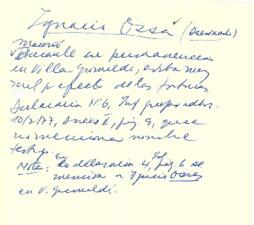 Ignacio Ossa (Asesinado)
Murió
durante su permanencia
en Villa Grimaldi, estaba muy
mal
de las torturas
Declaración Nº 6, Inf
10/2/77, Anexo 1, pág 9, que
no menciona nombre
testigo.
Nota: En declaración 4, pág 6 se
menciona a Ignacio Ossa
en V. Grimaldi.